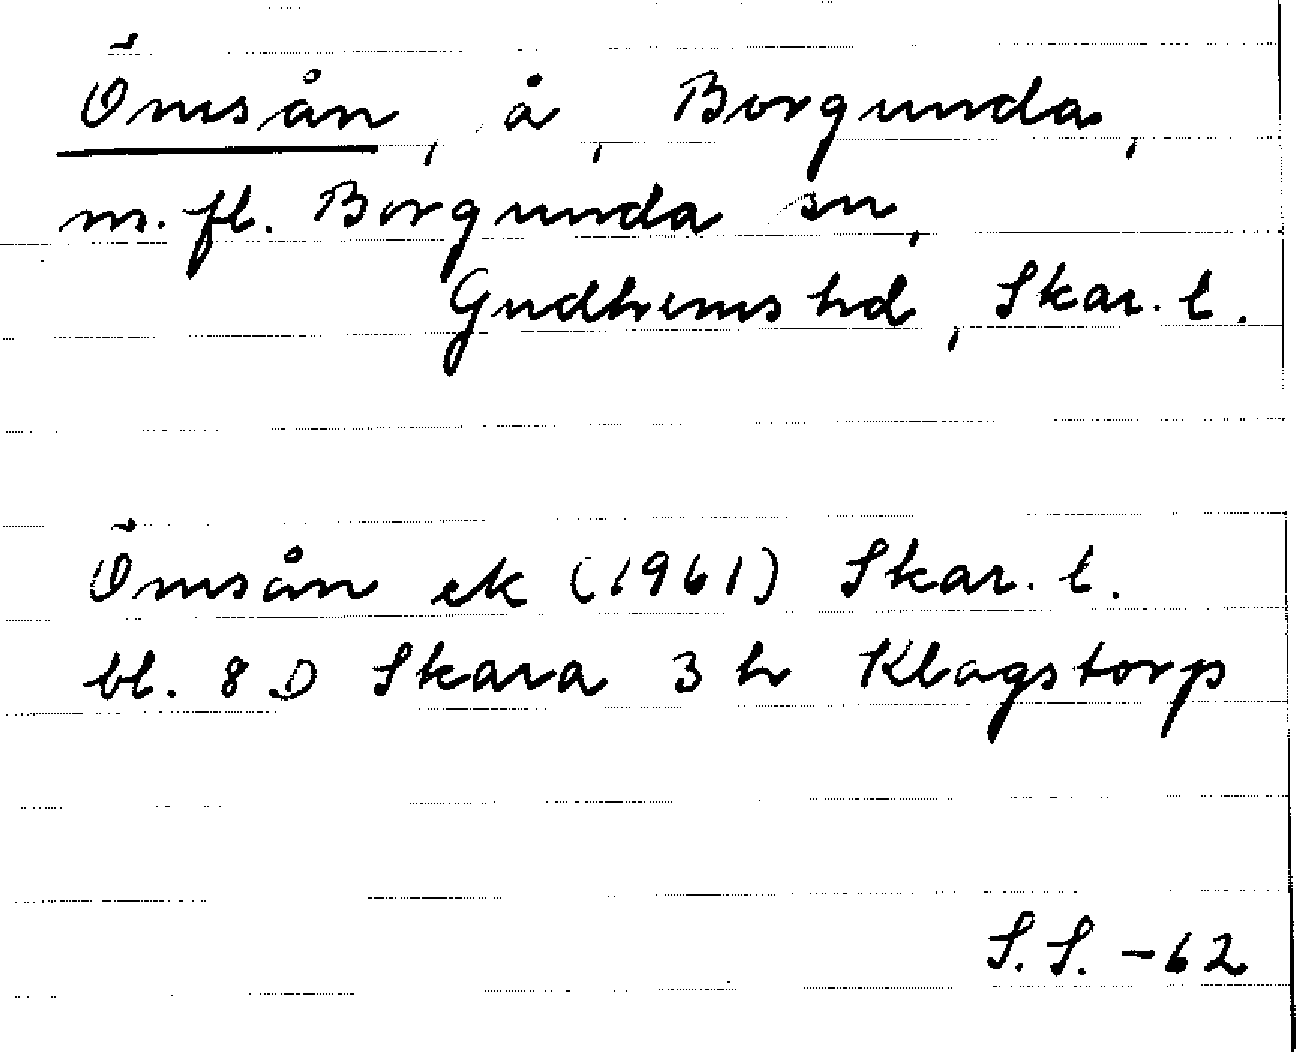 Ömsån, å, Borgunda,
m. fl. Borgunda sn,
Gudhems hd, Skar. l.
Ömsån ek (1961) Skar. l.
bl. 8 D Skara 3 h Klagstorp
S.S. -62